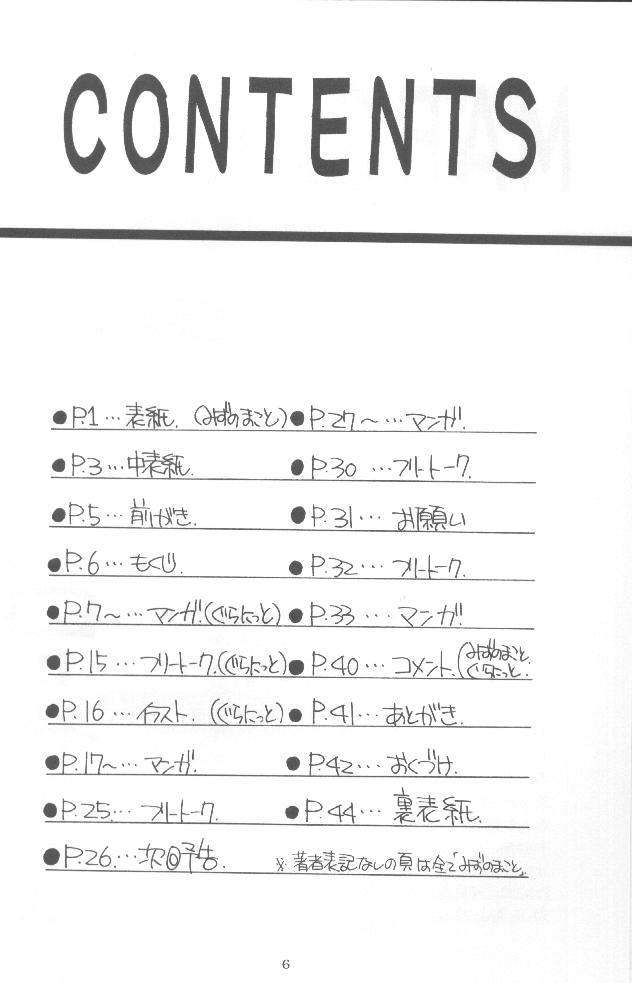 CONTENTS
●P.1…表紙.(みずのまこと)
●P.3…中表紙.
●P.5…前がき.
●P.6…もくじ.
●P.7〜…マンガ.(ぐらにっと)
●P.15…フリートーク.(ぐらにっと)
●P.16…イラスト.(ぐらにっと)
●P.17〜…マンガ.
●P.25…フリートーク.
●P.26…次回予告.
●P.27〜…マンガ.
●P.30…フリートーク.
●P.31…お願い
●P.32…フリートーク.
●P.33…マンガ.
●P.40…コメント.(みずのまこと.ぐらにっと.)
●P.41…あとがき.
●P.42…おくづけ.
●P.44…裏表紙.
※著者表記なしの頁は全て「みずのまこと」
6